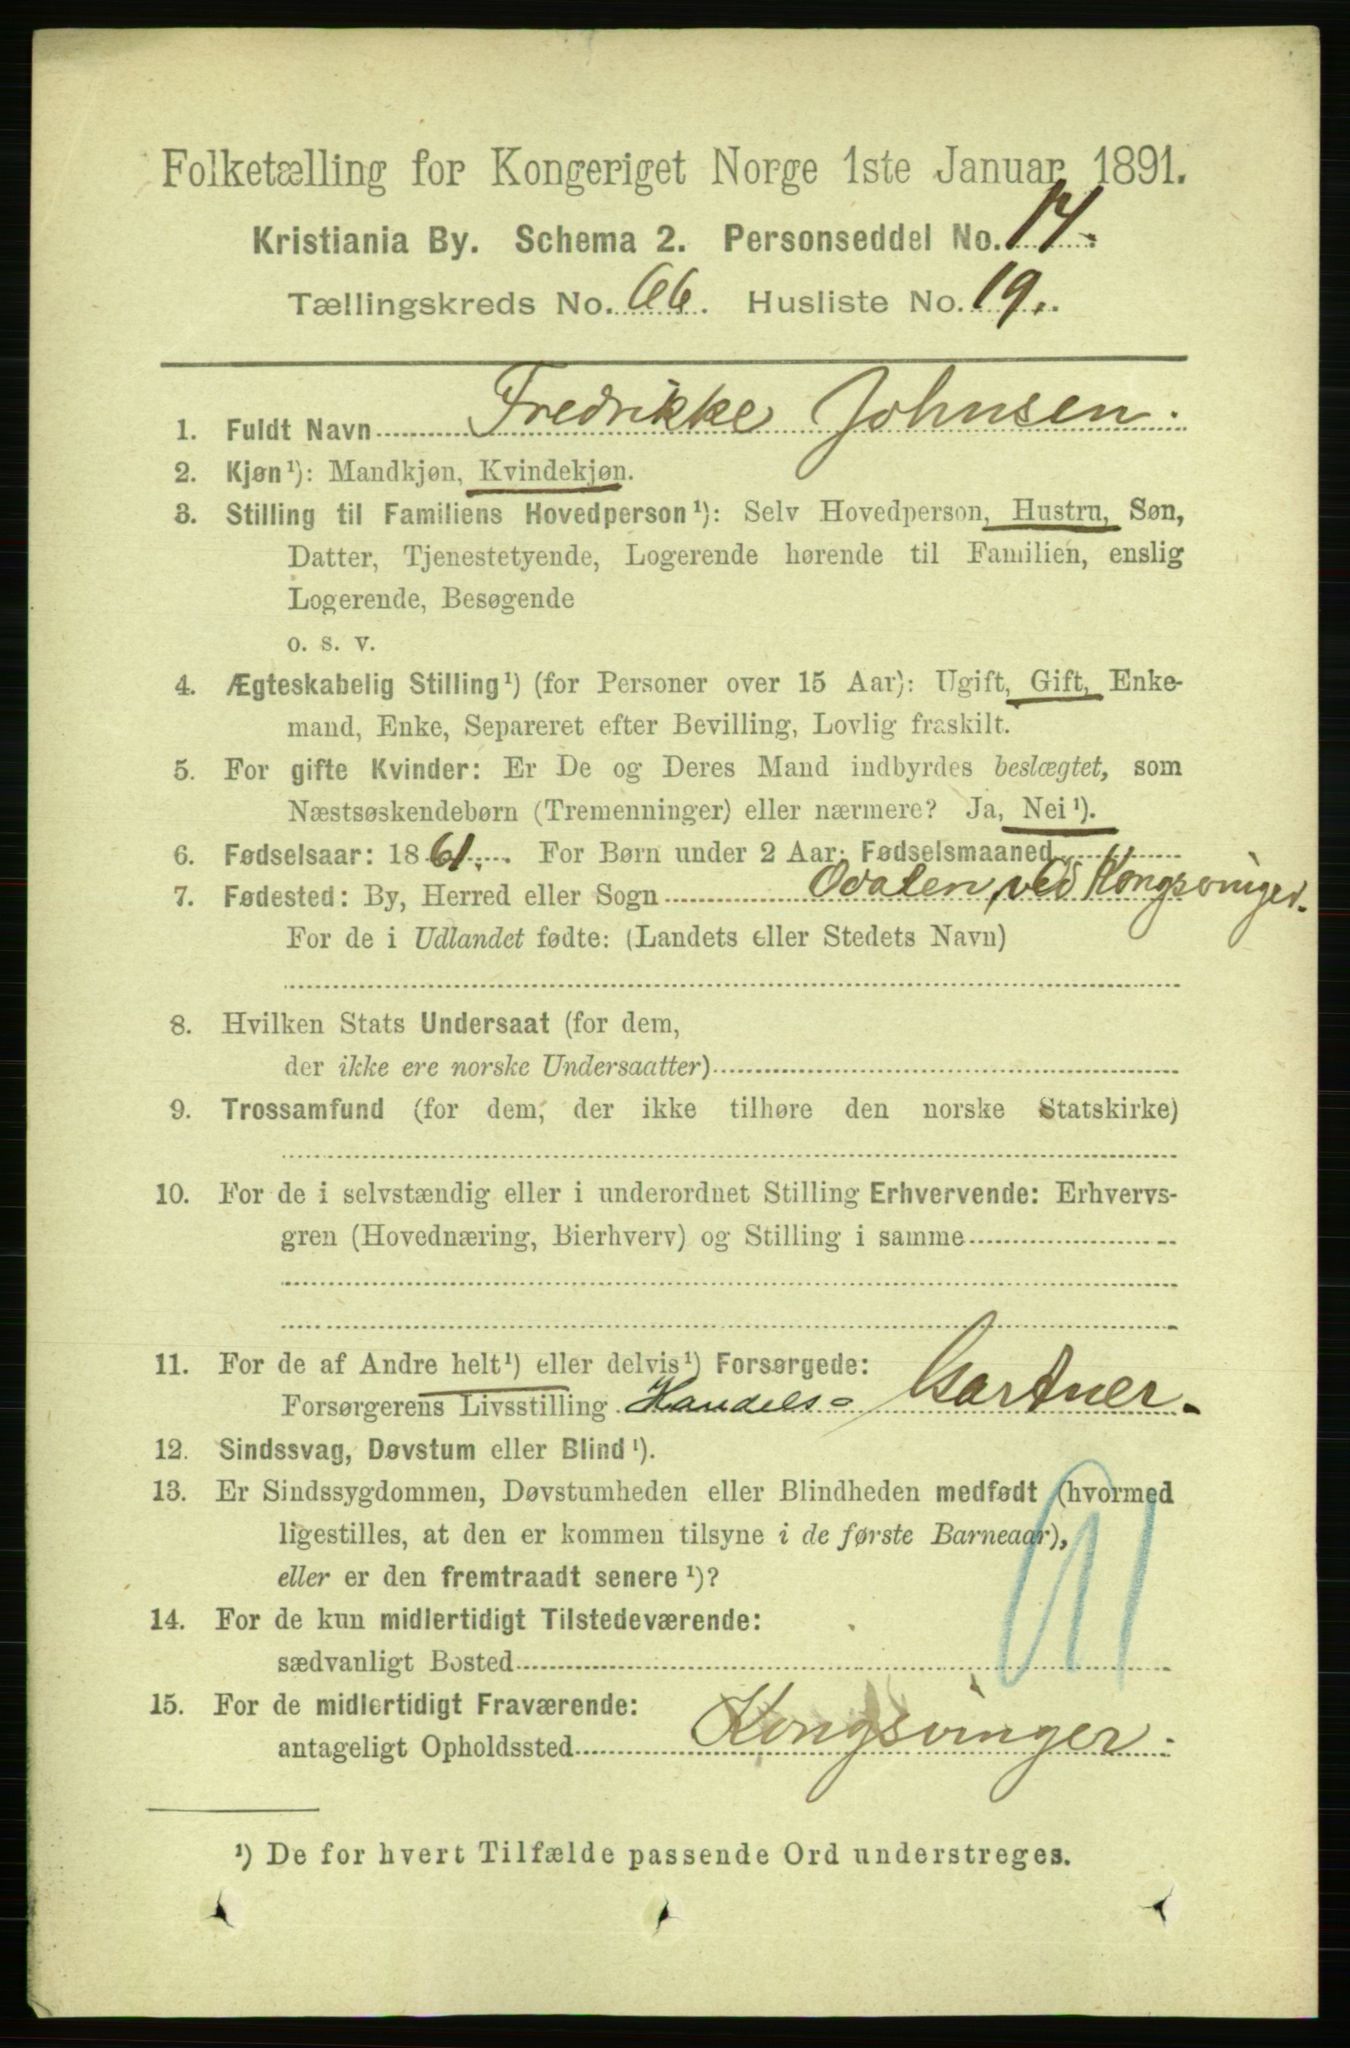 Folketælling for Kongeriget Norge 1ste Januar 1891.
Kristiania By. Schema 2. Personseddel No. 17.
Tællingskreds No. 66. Husliste No. 19.
1. Fuldt Navn Fredrikke Johnsen.
2. Kjøn¹): Mandkjøn, Kvindekjøn.
3. Stilling til Familiens Hovedperson¹): Selv Hovedperson, Hustru, Søn,
Datter, Tjenestetyende, Logerende hørende til Familien, enslig
Logerende, Besøgende
o. s. v.
4. Ægteskabelig Stilling¹) (for Personer over 15 Aar): Ugift, Gift, Enke-
mand, Enke, Separeret efter Bevilling, Lovlig fraskilt.
5. For gifte Kvinder: Er De og Deres Mand indbyrdes beslægtet, som
Næstsøskendebørn (Tremenninger) eller nærmere? Ja, Nei¹).
6. Fødselsaar: 1861. For Børn under 2 Aar: Fødselsmaaned
7. Fødested: By, Herred eller Sogn Odalen, ved Kongsvinger.
For de i Udlandet fødte: (Landets eller Stedets Navn)
8. Hvilken Stats Undersaat (for dem,
der ikke ere norske Undersaatter)
9. Trossamfund (for dem, der ikke tilhøre den norske Statskirke)
10. For de i selvstændig eller i underordnet Stilling Erhvervende: Erhvervs-
gren (Hovednæring, Bierhverv) og Stilling i samme
11. For de af Andre helt¹) eller delvis¹) Forsørgede:
Forsørgerens Livsstilling Handels- Gartner.
12. Sindssvag, Døvstum eller Blind¹).
13. Er Sindssygdommen, Døvstumheden eller Blindheden medfødt (hvormed
ligestilles, at den er kommen tilsyne i de første Barneaar),
eller er den fremtraadt senere¹)?
14. For de kun midlertidigt Tilstedeværende:
sædvanligt Bosted
15. For de midlertidigt Fraværende:
antageligt Opholdssted Kongsvinger.
¹) De for hvert Tilfælde passende Ord understreges.